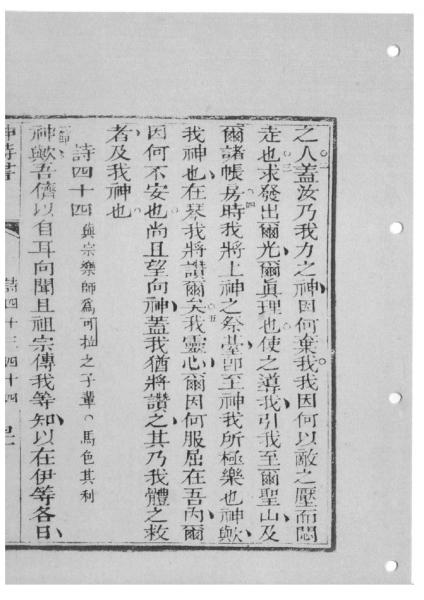 之人蓋汝乃我力之神因何棄我我因何以敵之壓而悶
走也求發出爾光爾眞理也使之導我引我至爾聖山及
爾諸帳房時我將上神之祭臺卽至神我所極樂也神歟
我神也在琴我將讚爾矣我靈心爾因何服屈在吾內爾
因何不安也尚且望向神蓋我猶將讚之其乃我體之救
者及我神也
詩四十四 與宗樂師爲可拉之子輩馬色其利
神歟吾儕以自耳向聞且祖宗傳我等知以在伊等各日
神詩書 詩四十三四十四